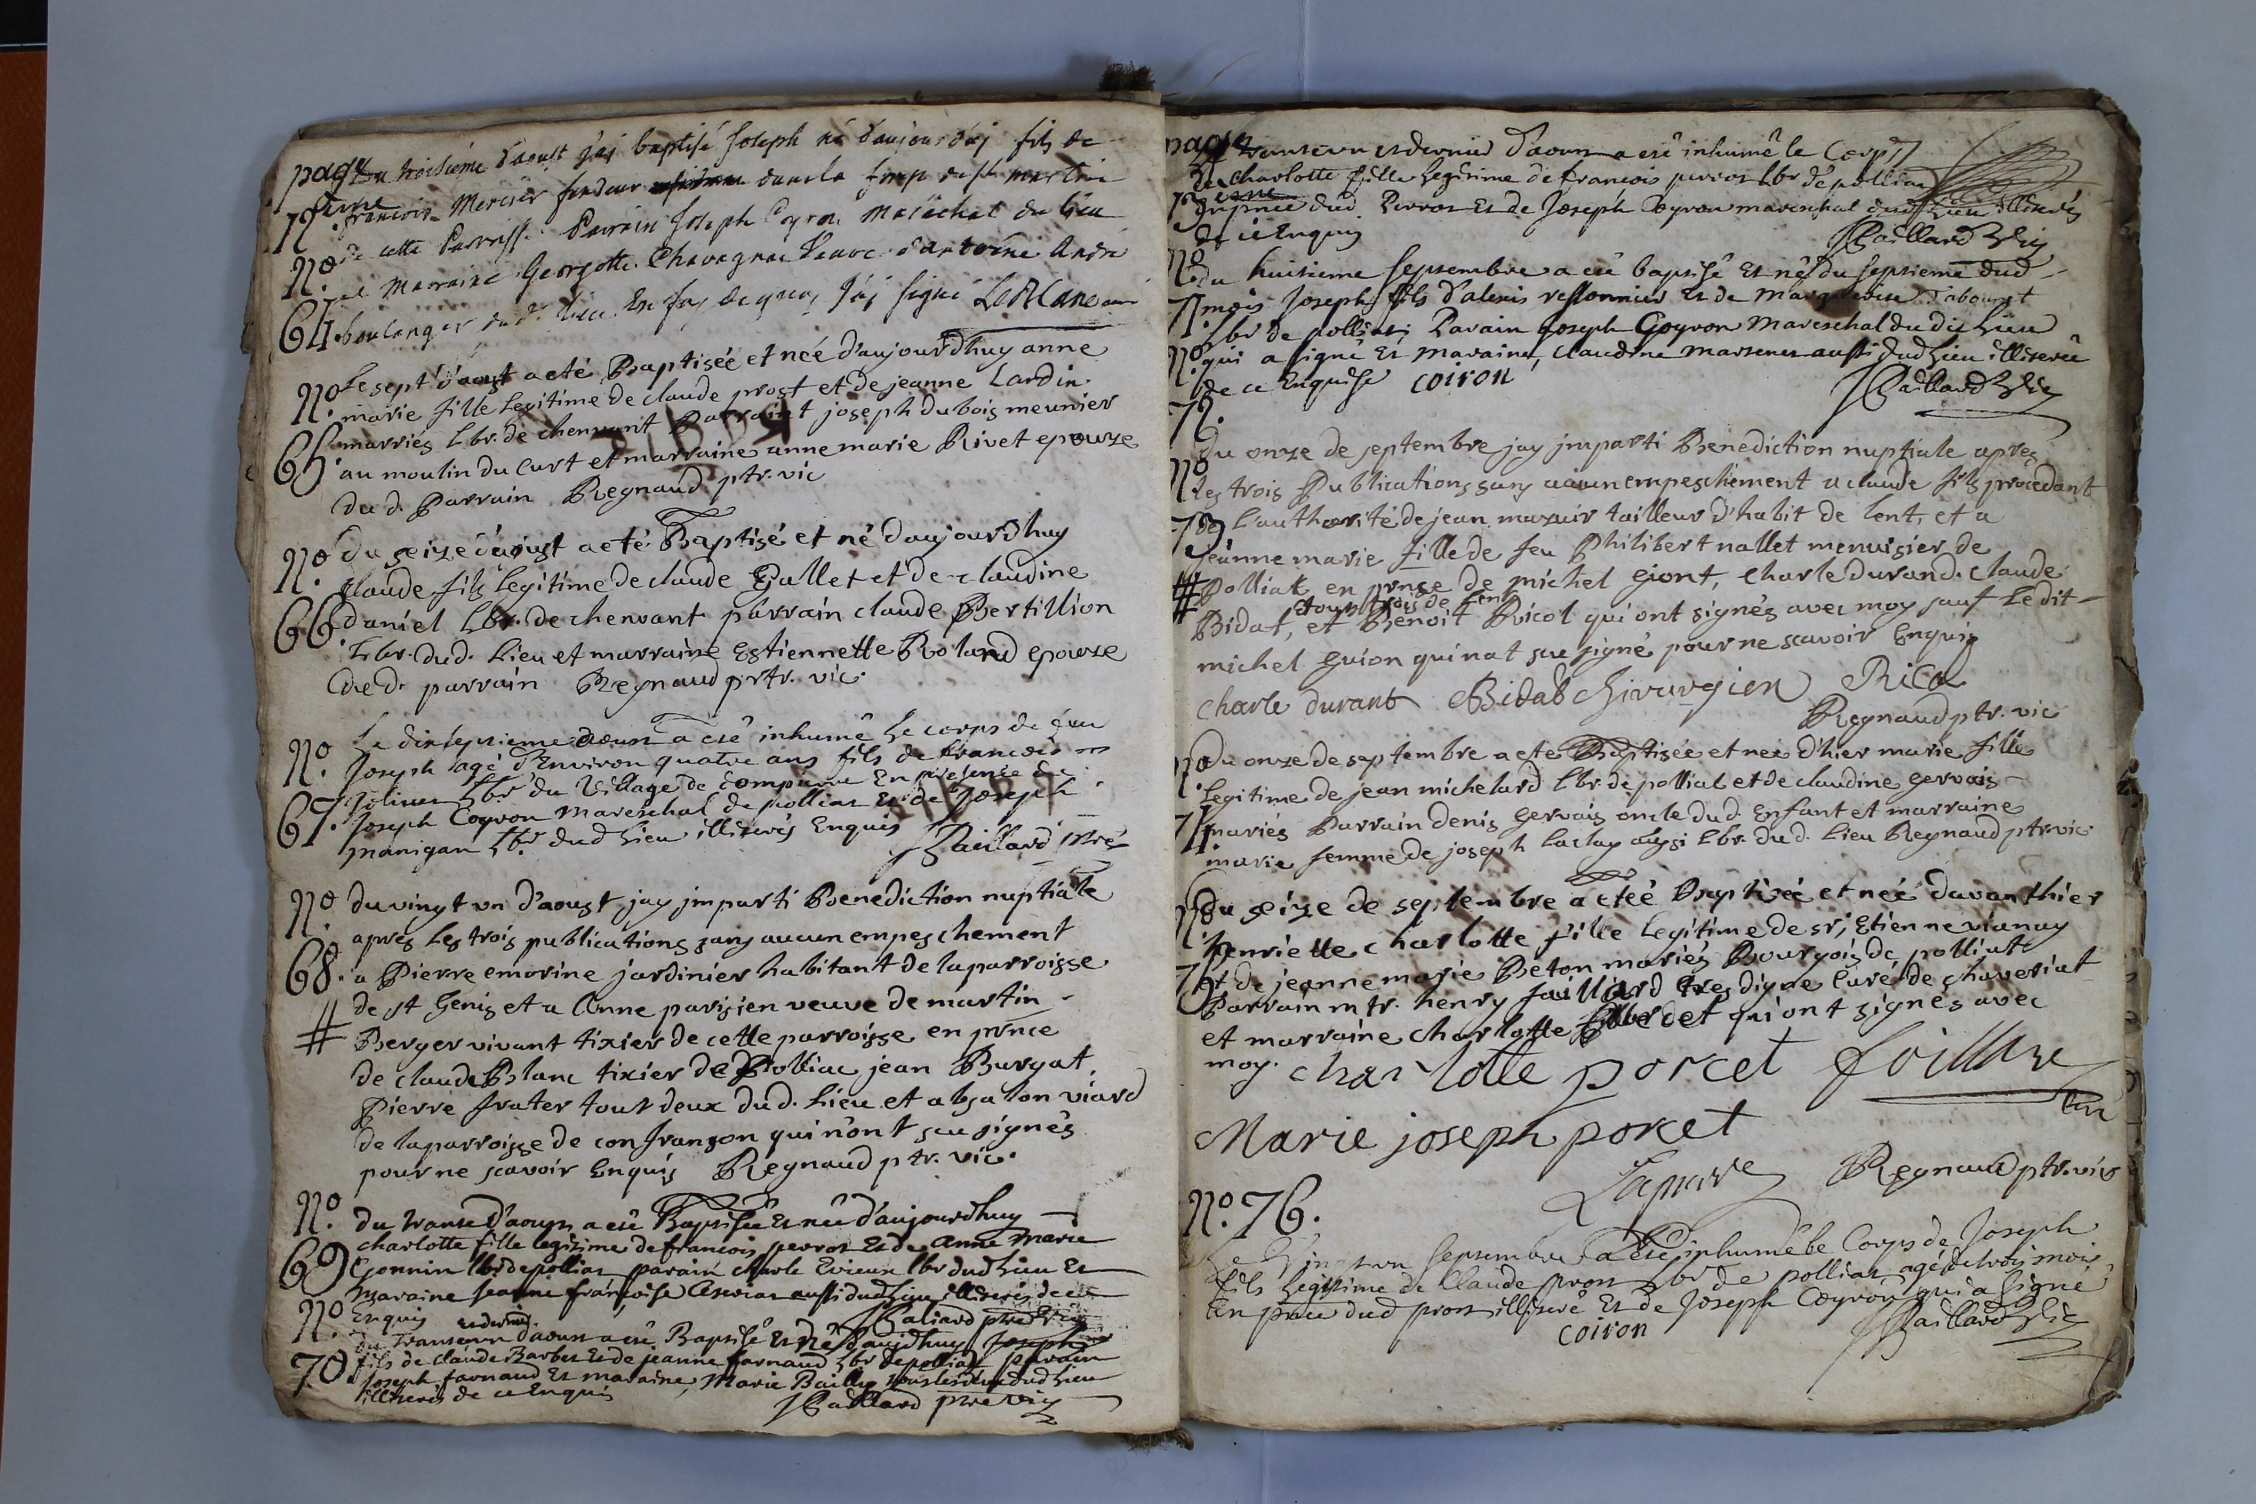 page
Du troisième d'aoust j'ai baptisé Joseph né d'aujourd'uj fils de
françois Mercier fondeur dans la
de cette Parroisse Parrain Joseph Coyron Maréchal du lieu
et Marraine Georgette Chavagnat veuve d'antoine André
boulanger dud. lieu En foy de quoy J'aj signé LeBlanc curé
No.
64.
Le sept d'aoust a eté Baptisée et née d'aujourdhuy anne
marie fille legitime de claude prost et de jeanne Lardin
marriés Lbr. de chenvant Parraint joseph dubois meunier
au moulin du curt et marraine anne marie Rivet epouze
du d. Parrain Regnaud ptr. vic
No.
65.
Du seize d'aoust a eté Baptisé et né d'aujourdhuy
claude fils legitime de claude Gallet et de claudine
daniel Lbr. de chenvant parrain claude Bertillion
Lbr. dud. Lieu et marraine Estiennette Roland epouze
du d. parrain Regnaud prtr. vic.
No.
66.
Le dixseptieme aoust a eté inhumé le corps de feu
Joseph agé d'Environ quatre ans fils de francois
Jolivet Lbr. du village de Em présence de
Joseph Coyron mareschal de polliat Et de Joseph
manigan Lbr. dud Lieu illiterés Enquis JBaillard
No.
67.
du vingt un d'aoust jay jmparti Benediction nuptiale
aprés Les trois publications sans aucun empeschement
a Pierre emorine jardinier habitant de la parroisse
de st Genis et a Anne parisien veuve de martin
Berger vivant tixier de cette parroisse en prnce
de claude Blanc tixier de Polliac jean Burgat
Pierre frater tout deux du d. Lieu et absalon viard
de la parroisse de confranson qui n'ont scu signés
pour ne scavoir Enquis Regnaud ptr. vic.
No.
68.
#
du trante d'aoust a eté Baptisée Et née d'aujourdhuy
charlotte fille legitime de francois perrot Et de anne marie
Gonnin lbr de polliat parain charle Lbr dud Lieu Et
maraine jeanne françoise aussi dud Lieu illiterés de ce
Enquis JBailiard ptre Vic
No.
69
du Tranteun et dernier d'aoust a eté Baptisé Et Né d'aujdhuy Joseph
fils de claude Barbet Et de jeanne farnaud Lbr de polliat parain
joseph farnaud Et maraine, Marie Bailly tous les deux dud Lieu
illiterés de ce Enquis JBaillard ptre Vic
No.
70.
page
Le tranteun et dernier d'aoust a eté inhumé le Corps
de charlotte fille Legitime de francois perrot Lbr de polliat
En pnce dud Perrot Et de Joseph Coyron mareschal dud Lieu illiterés
de ce Enquis JBaillard Vic
No
71.
du huitieme septembre a eté baptisé Et né du septieme dud
mois Joseph fils d'alexis vessonnier Et de marguerite Tabouret
Lbr de polliat; Parain joseph Coyron mareschal du dit Lieu
qui a signé Et maraine, claudine aussi dud Lieu illiterée
de ce Enquise coiron JBaillard Vic
No
72.
Du onze de septembre jay jmparti Benediction nuptiale aprés
Les trois Publications sans aucun empeschement a claude fils procedant
de L'authorité de jean mazuir tailleur d'habit de Lent, et a
jeanne marie fille de feu Philibert nallet menuisier de
Polliat en prnse de michel giont, Charle durand. claude
tous trois de Lent
Bidat, et Benoit Ricol qui ont signés avec moy sauf Le dit
michel guion qui nat scu signé pour ne scavoir Enquis
charle durant Bidat chirurgien Ricol
Regnaud ptr. vic
No
73
#
Du onze de septembre a eté Baptisée et née d'hier marie fille
Legitime de jean michelard Lbr. de polliat et de claudine gervais
mariés Parrain denis gervais oncle du d. Enfant et marraine
marie femme de joseph Laclay aussi Lbr. du d. Lieu Regnaud ptr. vic
No
74.
du seize de septembre a eteé Baptizée et née davanthier
henriette charlotte fille Legitime de sr; Etienne vianay
et de jeanne marie Beton mariés Bourgois de polliat
Parrain mtr. henry faillard tres digne Curé de chaveriat
et marraine charlotte qui ont signés avec
moy. charlotte porcet foillard
curé
Marie joseph porcet
Regnaud ptr. vic
No
75
No. 76.
Le vingt un septembre a eté inhumé le Corps de Joseph
fils Legitime de Claude prost Lbr de polliat, agé de trois mois
En pnce dud prost illiteré Et de Joseph Coyron qui a signé
coiron JBaillard Vic